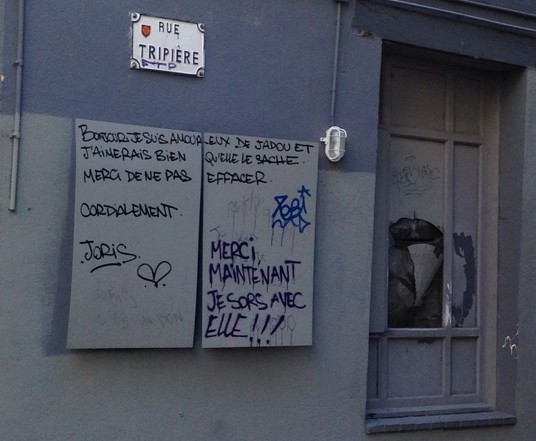 RUE
TRIPIÈRE
FTP
BONJOUR JE SUIS AMOUREUX DE JADOU ET
J'AIMERAIS BIEN QU'ELLE LE SACHE.
MERCI DE NE PAS EFFACER.
CORDIALEMENT.
JORIS.
MERCI,
MAINTENANT
JE SORS AVEC
ELLE!!!